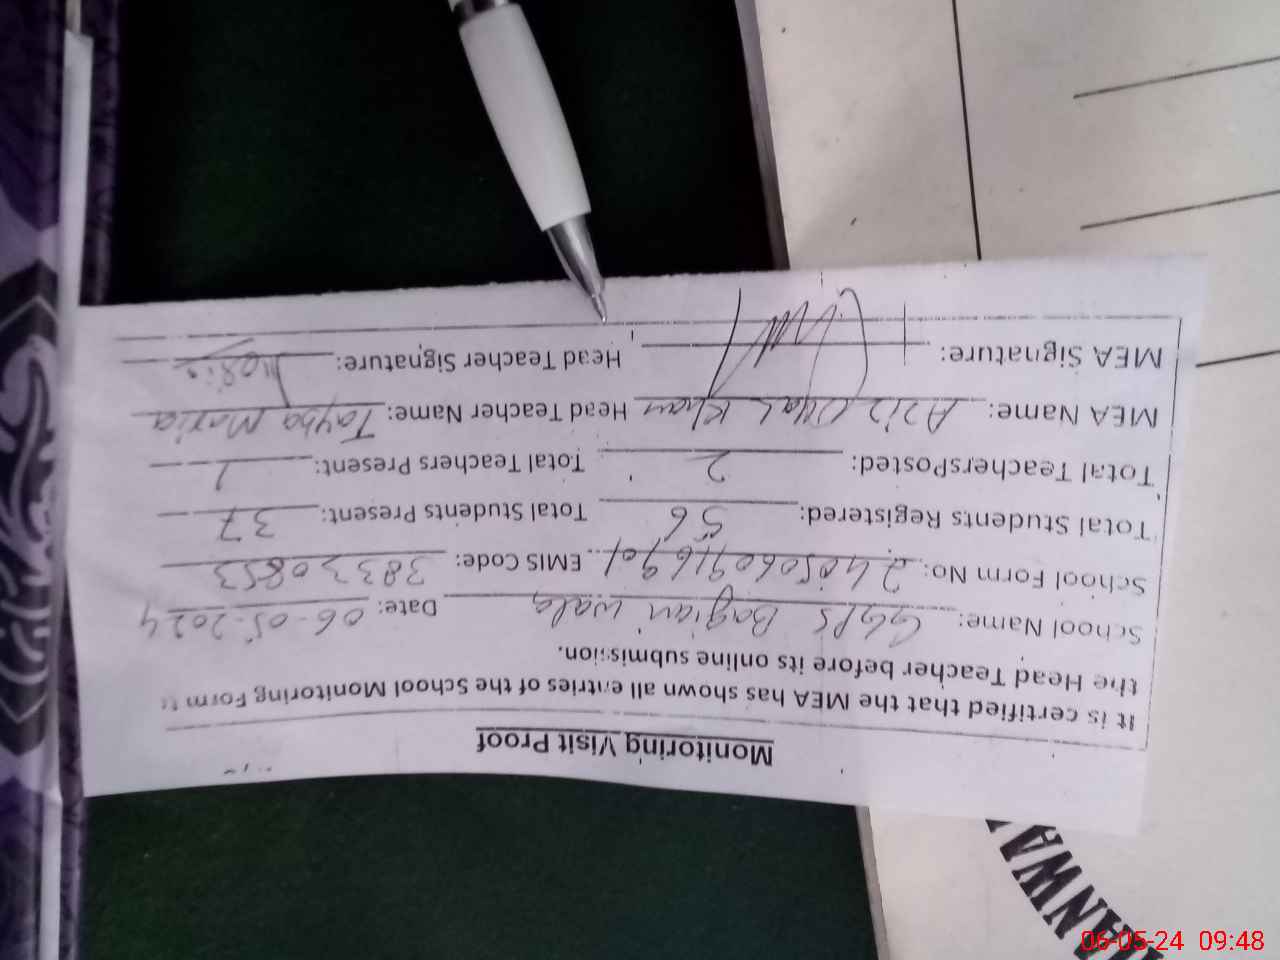 Monitoring Visit Proof
It is certified that the MEA has shown all entries of the School Monitoring Form to
the Head Teacher before its online submission.
School Name: GGPS Bagian wala Date: 06-05-2024
School Form No: EMIS Code: 38330853
Total Students Registered: 56 Total Students Present: 37
Total TeachersPosted: 2 Total Teachers Present: 1
MEA Name: Aziz Ullah Khan Head Teacher Name: Tayba Maria
MEA Signature: Head Teacher Signature: Maria
06-05-24 09:48